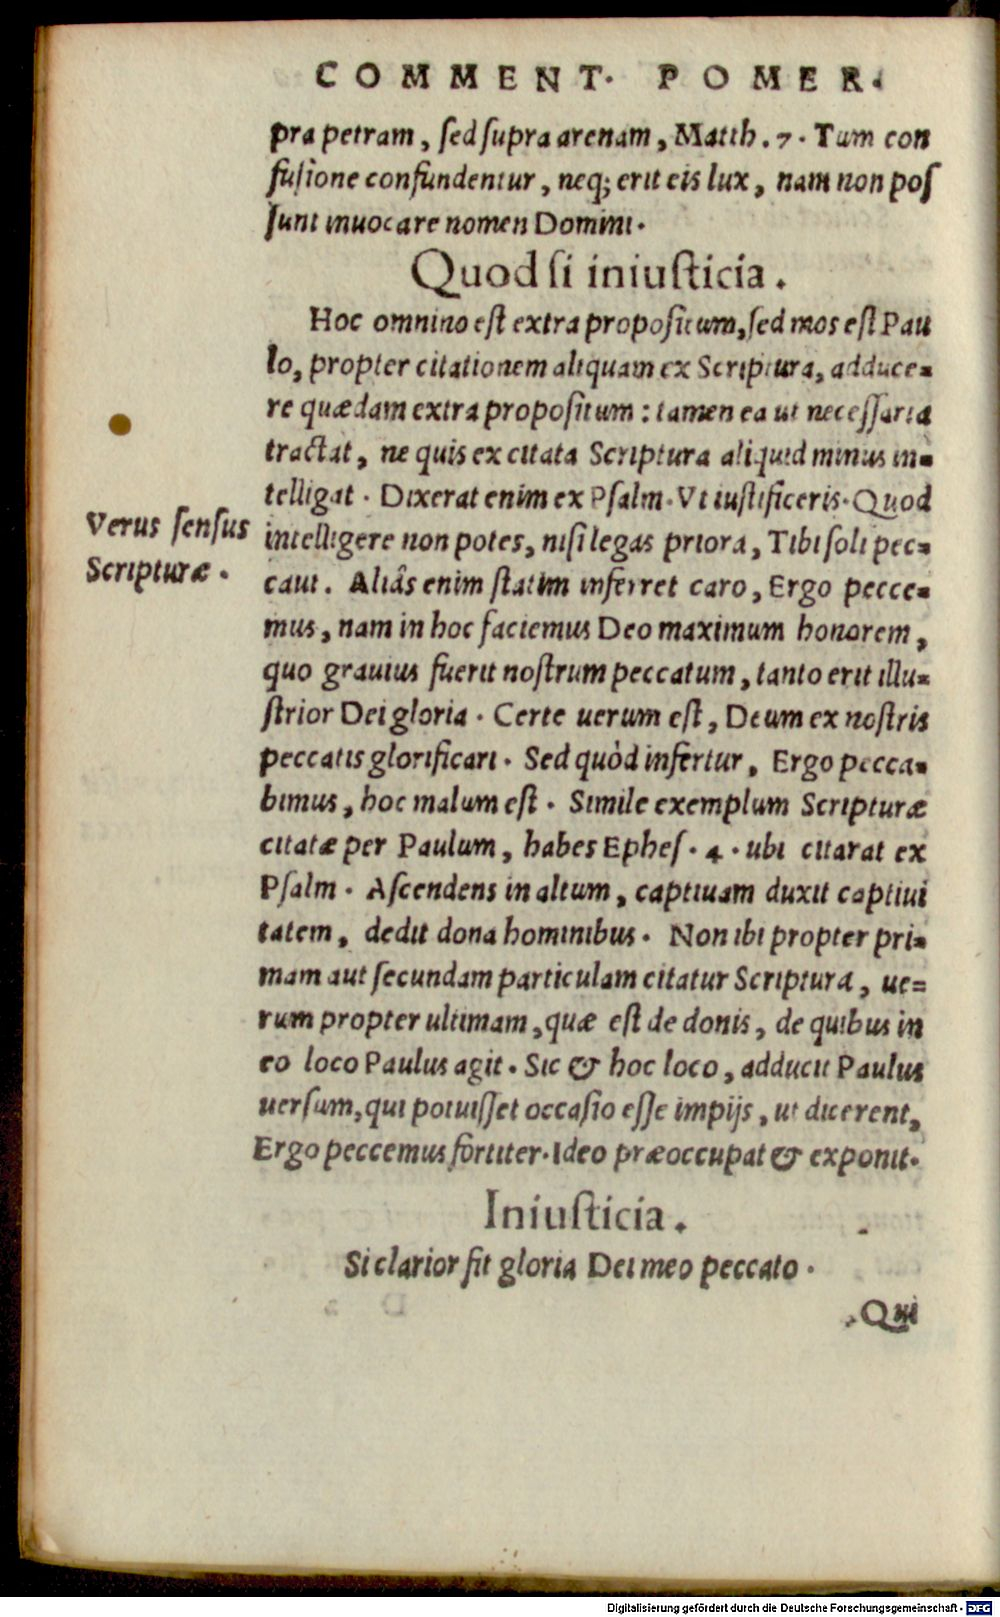 COMMENT. POMER.
pra petram, ſed ſupra arenam, Matth. 7. Tum con
fuſione confundentur, neq; erit eis lux, nam non poſ
ſunt inuocare nomen Domini.
Quod ſi iniuſticia.
Hoc omnino eſt extra propoſitum, ſed mos eſt Pau
lo, propter citationem aliquam ex Scriptura, adduce=
re quædam extra propoſitum: tamen ea ut neceſſaria
tractat, ne quis ex citata Scriptura aliquid minus in=
telligat. Dixerat enim ex Pſalm. Vt iuſtificeris. Quod
Verus ſenſus
Scripturæ.
intelligere non potes, niſi legas priora, Tibi ſoli pec=
caui. Aliâs enim ſtatim inferret caro, Ergo pecce=
mus, nam in hoc faciemus Deo maximum honorem,
quo grauius fuerit noſtrum peccatum, tanto erit illu=
ſtrior Dei gloria. Certe uerum eſt, Deum ex noſtris
peccatis glorificari. Sed quòd infertur, Ergo pecca=
bimus, hoc malum eſt. Simile exemplum Scripturæ
citatæ per Paulum, habes Epheſ. 4. ubi citarat ex
Pſalm. Aſcendens in altum, captiuam duxit captiui
tatem, dedit dona hominibus. Non ibi propter pri=
mam aut ſecundam particulam citatur Scriptura, ue=
rum propter ultimam, quæ eſt de donis, de quibus in
eo loco Paulus agit. Sic & hoc loco, adducit Paulus
uerſum, qui potuiſſet occaſio eſſe impijs, ut dicerent,
Ergo peccemus fortiter. Ideo præoccupat & exponit.
Iniuſticia.
Si clarior fit gloria Dei meo peccato.
Qui
Digitalisierung gefördert durch die Deutsche Forschungsgemeinschaft - DFG